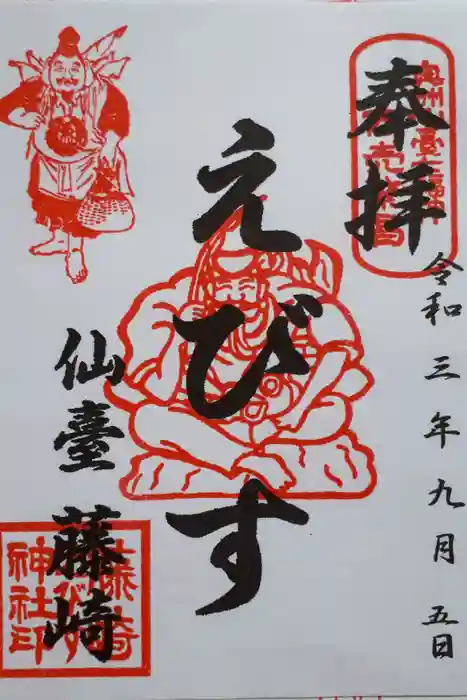 奉拝
令和三年九月五日
えびす
仙臺
藤崎
藤崎
えびす
神社印